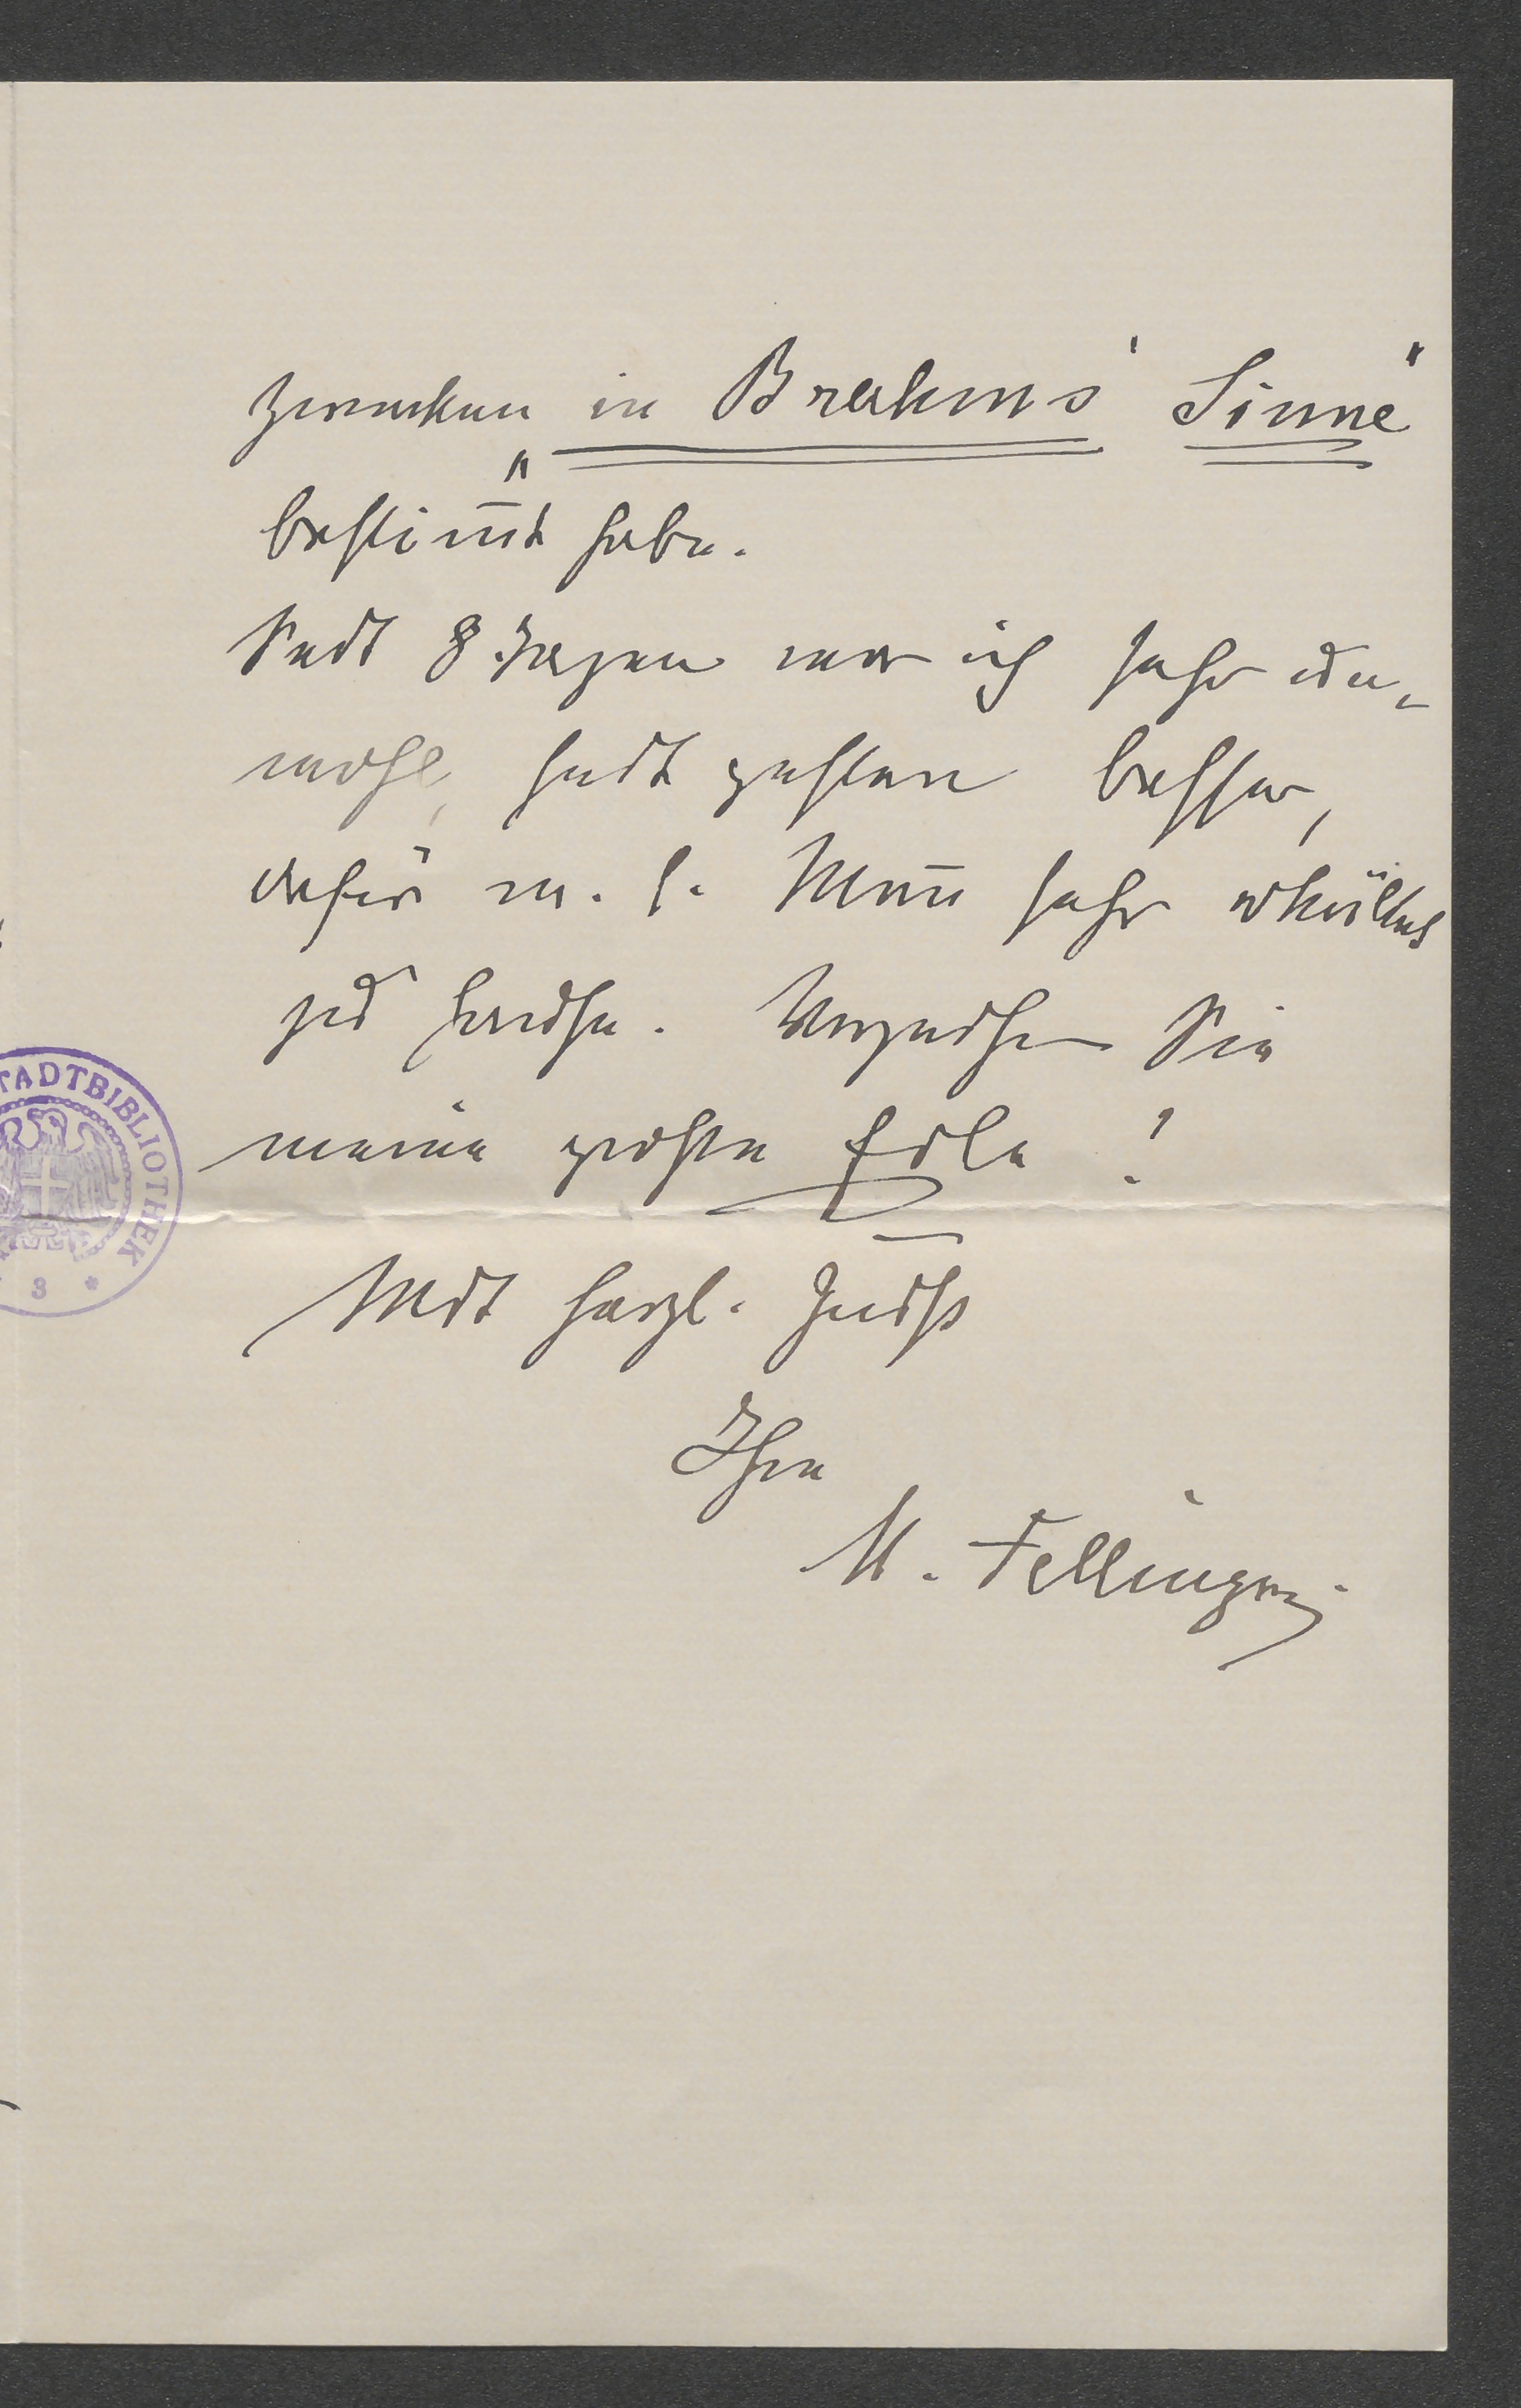 Zwecken „in Brahms' Sinne"
bestim̅t habe.
Seit 8 Tagen war ich sehr un-
wohl, seit gestern besser,
dafür m. l. Man̅ sehr erkältet
zu Hause. Verzeihen Sie
meine große Eile!
Mit herzl. Gruß
Ihre
M. Fellinger.
STADTBIBLIOTHEK
* 3 *